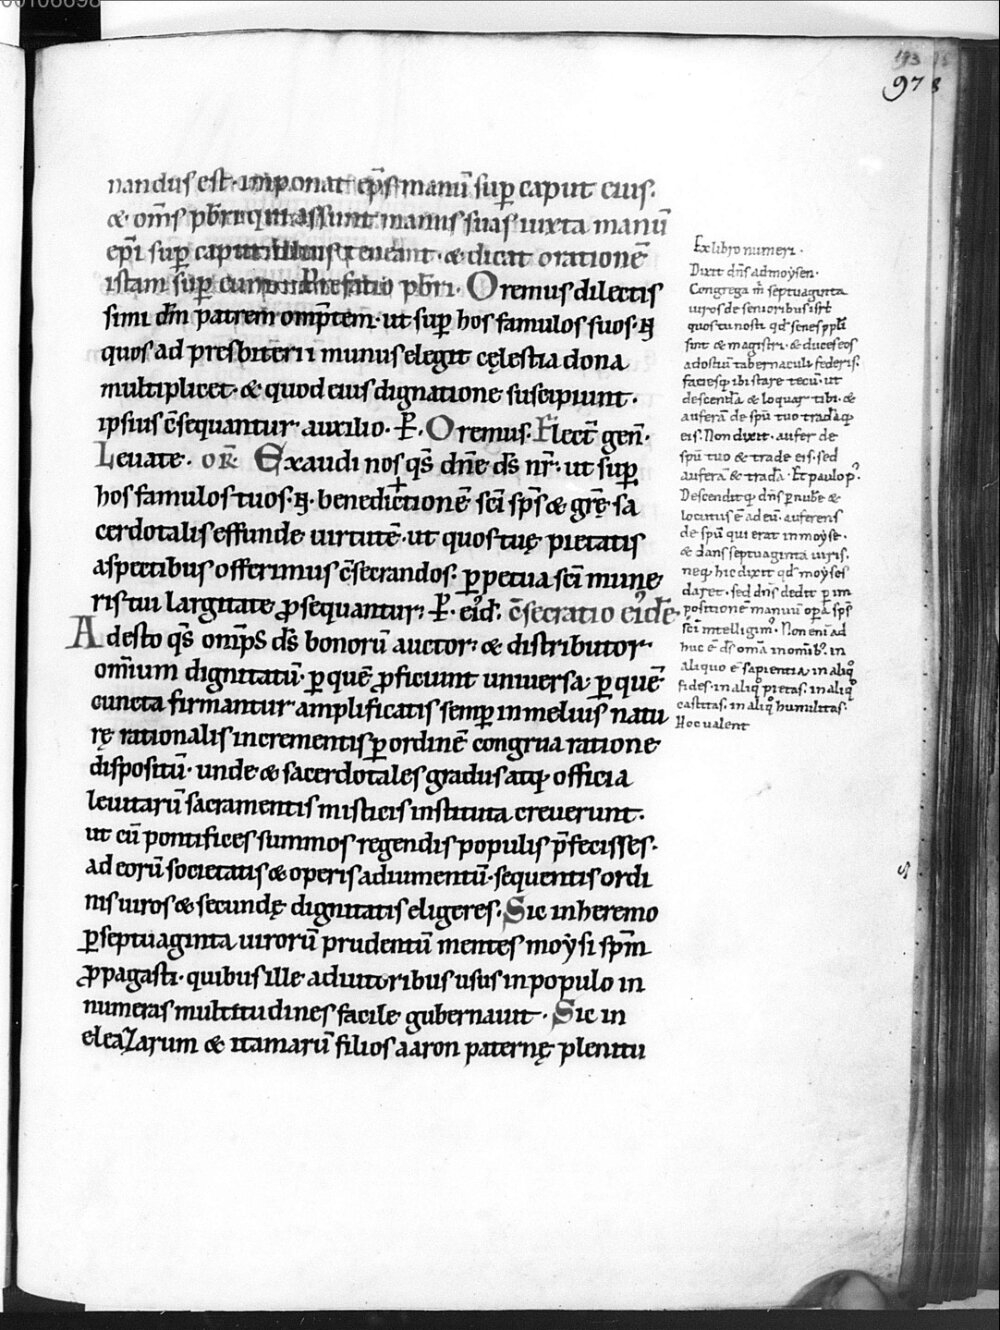 00106698
193
978
nandus est· imponat ep̄s manū sup̱ caput eius.
& om̄s pb̄ri qui assunt manus suas iuxta manū
ep̄i sup̱ caput illius teneant· & dicat orationē
istam sup̱ eum· Prefatio pb̄ri· Oremus dilectis
simi dm̄ patrem omp̄tem· ut sup̱ hos famulos suos· N̄
quos ad presbiterii munus elegit cęlestia dona
multiplicet· & quod eius dignatione suscipiunt·
ipsius c̄sequantur auxilio· P̱· Oremus· Flect̄ gen̄·
Leuate· or̄· Exaudi nos qs̄ dn̄e ds̄ nr̄· ut sup̱
hos famulos tuos· N̄· benedi+ctionē sc̄i sp̄s & gr̄ę sa
cerdotalis effunde uirtutē· ut quos tuę pietatis
aspectibus offerimus c̄secrandos· p̱petua sc̄i mune
ris tui largitate ꝓsequantur; P̱· eiꝰd̄· c̄secratio eiꝰdē·
Adesto qs̄ omp̄s ds̄ bonorū auctor· & distributor
om̄ium dignitatū· p̱ quē ꝓficiunt uniuersa· p̱ quē
cuncta firmantur amplificatis semp̱ in melius natu
rę rationalis incrementis p̱ ordinē congrua ratione
dispositū· unde & sacerdotales gradus atq; officia
leuitarū sacramentis misticis instituta creuerunt·
ut cū pontifices summos regendis populis p̄fecisses·
ad eorū societatis & operis adiumentū· sequentis ordi
nis uiros & secundę dignitatis eligeres· Sic in heremo
p̱ septuaginta uirorū prudentū mentes moẏsi sp̄m
ꝓpagasti· quibus ille adiutoribus usus in populo in
numeras multitudines facile gubernauit· Sic in
eleazarum & itamarū filios aaron paternę plenitu
Ex libro numeri·
Dixit dn̄s ad moẏsen·
Congrega m̄ septuaginta
uiros de senioribus isrl̄
quos tu nosti qd̄ senes ppl̄i
sint & magistri· & duces eos
ad ostiū tabernaculi federis·
faciesq; ibi stare tecū· ut
descendā & loquar tibi· &
auferā de sp̄u tuo tradāq;
eis· Non dixit· aufer de
sp̄u tuo & trade eis· sed
auferā & tradā· Et paulo pꝰ·
Descenditq; dn̄s p̱ nubē &
locutus ē ad eū· auferens
de sp̄u qui erat in moẏse·
& dans septuaginta uiris·
neq; hic dixit qd̄ moẏses
daret· sed dn̄s dedit p̱ im
positionē manuū op̱a sp̄s
sc̄i intelligim̄· Non eni ad
huc ē ds̄ om̄a in omib;· in
aliquo ē sapientia· in aliqͦ
fides· in aliqͦ pietas· in aliqͦ
castitas· in aliqͦ humilitas·
Hoc ualent